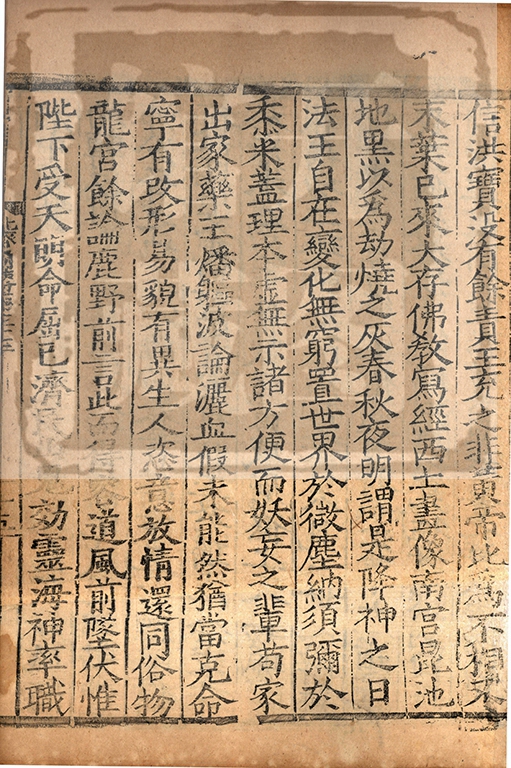 信洪寶沒有餘責王充之非黃帝比為不相糸
末葉已來大存佛教寫經西土畫像南宮昆池
地黑以為劫燒之灰春秋夜明謂是降神之日
法王自在變化無窮置世界於微塵納須彌於
黍米蓋理本虛無示諸方便而妖妄之輩苟家
出家藥王燔軀波論灑血假未能然猶當克命
寧有改形易貌有異生人恣意放情還同俗物
龍宮餘論鹿野前言此而得容道風前墜伏惟
陛下受天明命屈己濟民 効靈海神率職